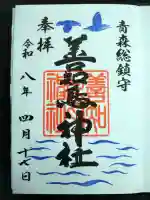 青森総鎮守
奉拝
善知鳥神社
善知
神社
令和八年四月十七日